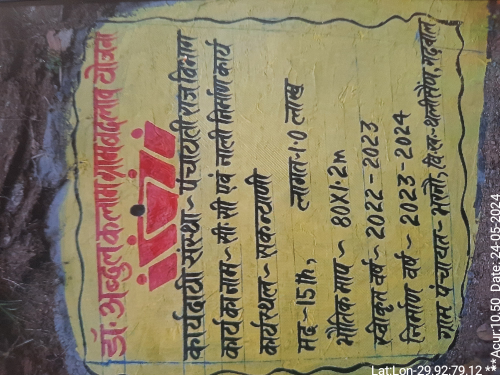 डॉ. अब्दुल कलाम ग्राम बदलाव योजना
कार्यदायी संस्था ~ पंचायती राज विभाग
कार्य का नाम ~ सी.सी एवं नाली निर्माण कार्य
कार्यस्थल ~ सकन्याणी
मद ~ 15th, लागत ~ 1.0 लाख
भौतिक माप ~ 80X1.2m
स्वीकृत वर्ष ~ 2022-2023
निर्माण वर्ष ~ 2023-2024
ग्राम पंचायत ~ वि.ख ~ थलीसैंण, गढ़वाल
Lat:Lon-29.92:79.12
**Acur:10.50 Date: 24-05-2024